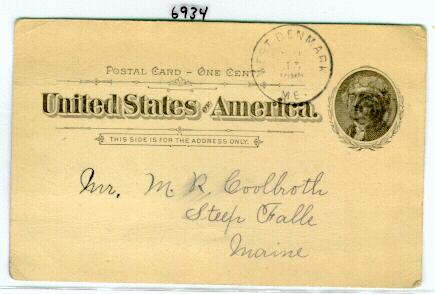 6934
WEST DENMARK
ME.
POSTAL CARD – ONE CENT
United States of America.
THIS SIDE IS FOR THE ADDRESS ONLY.
Mr. M. R. Coolbroth
Steep Falls
Maine